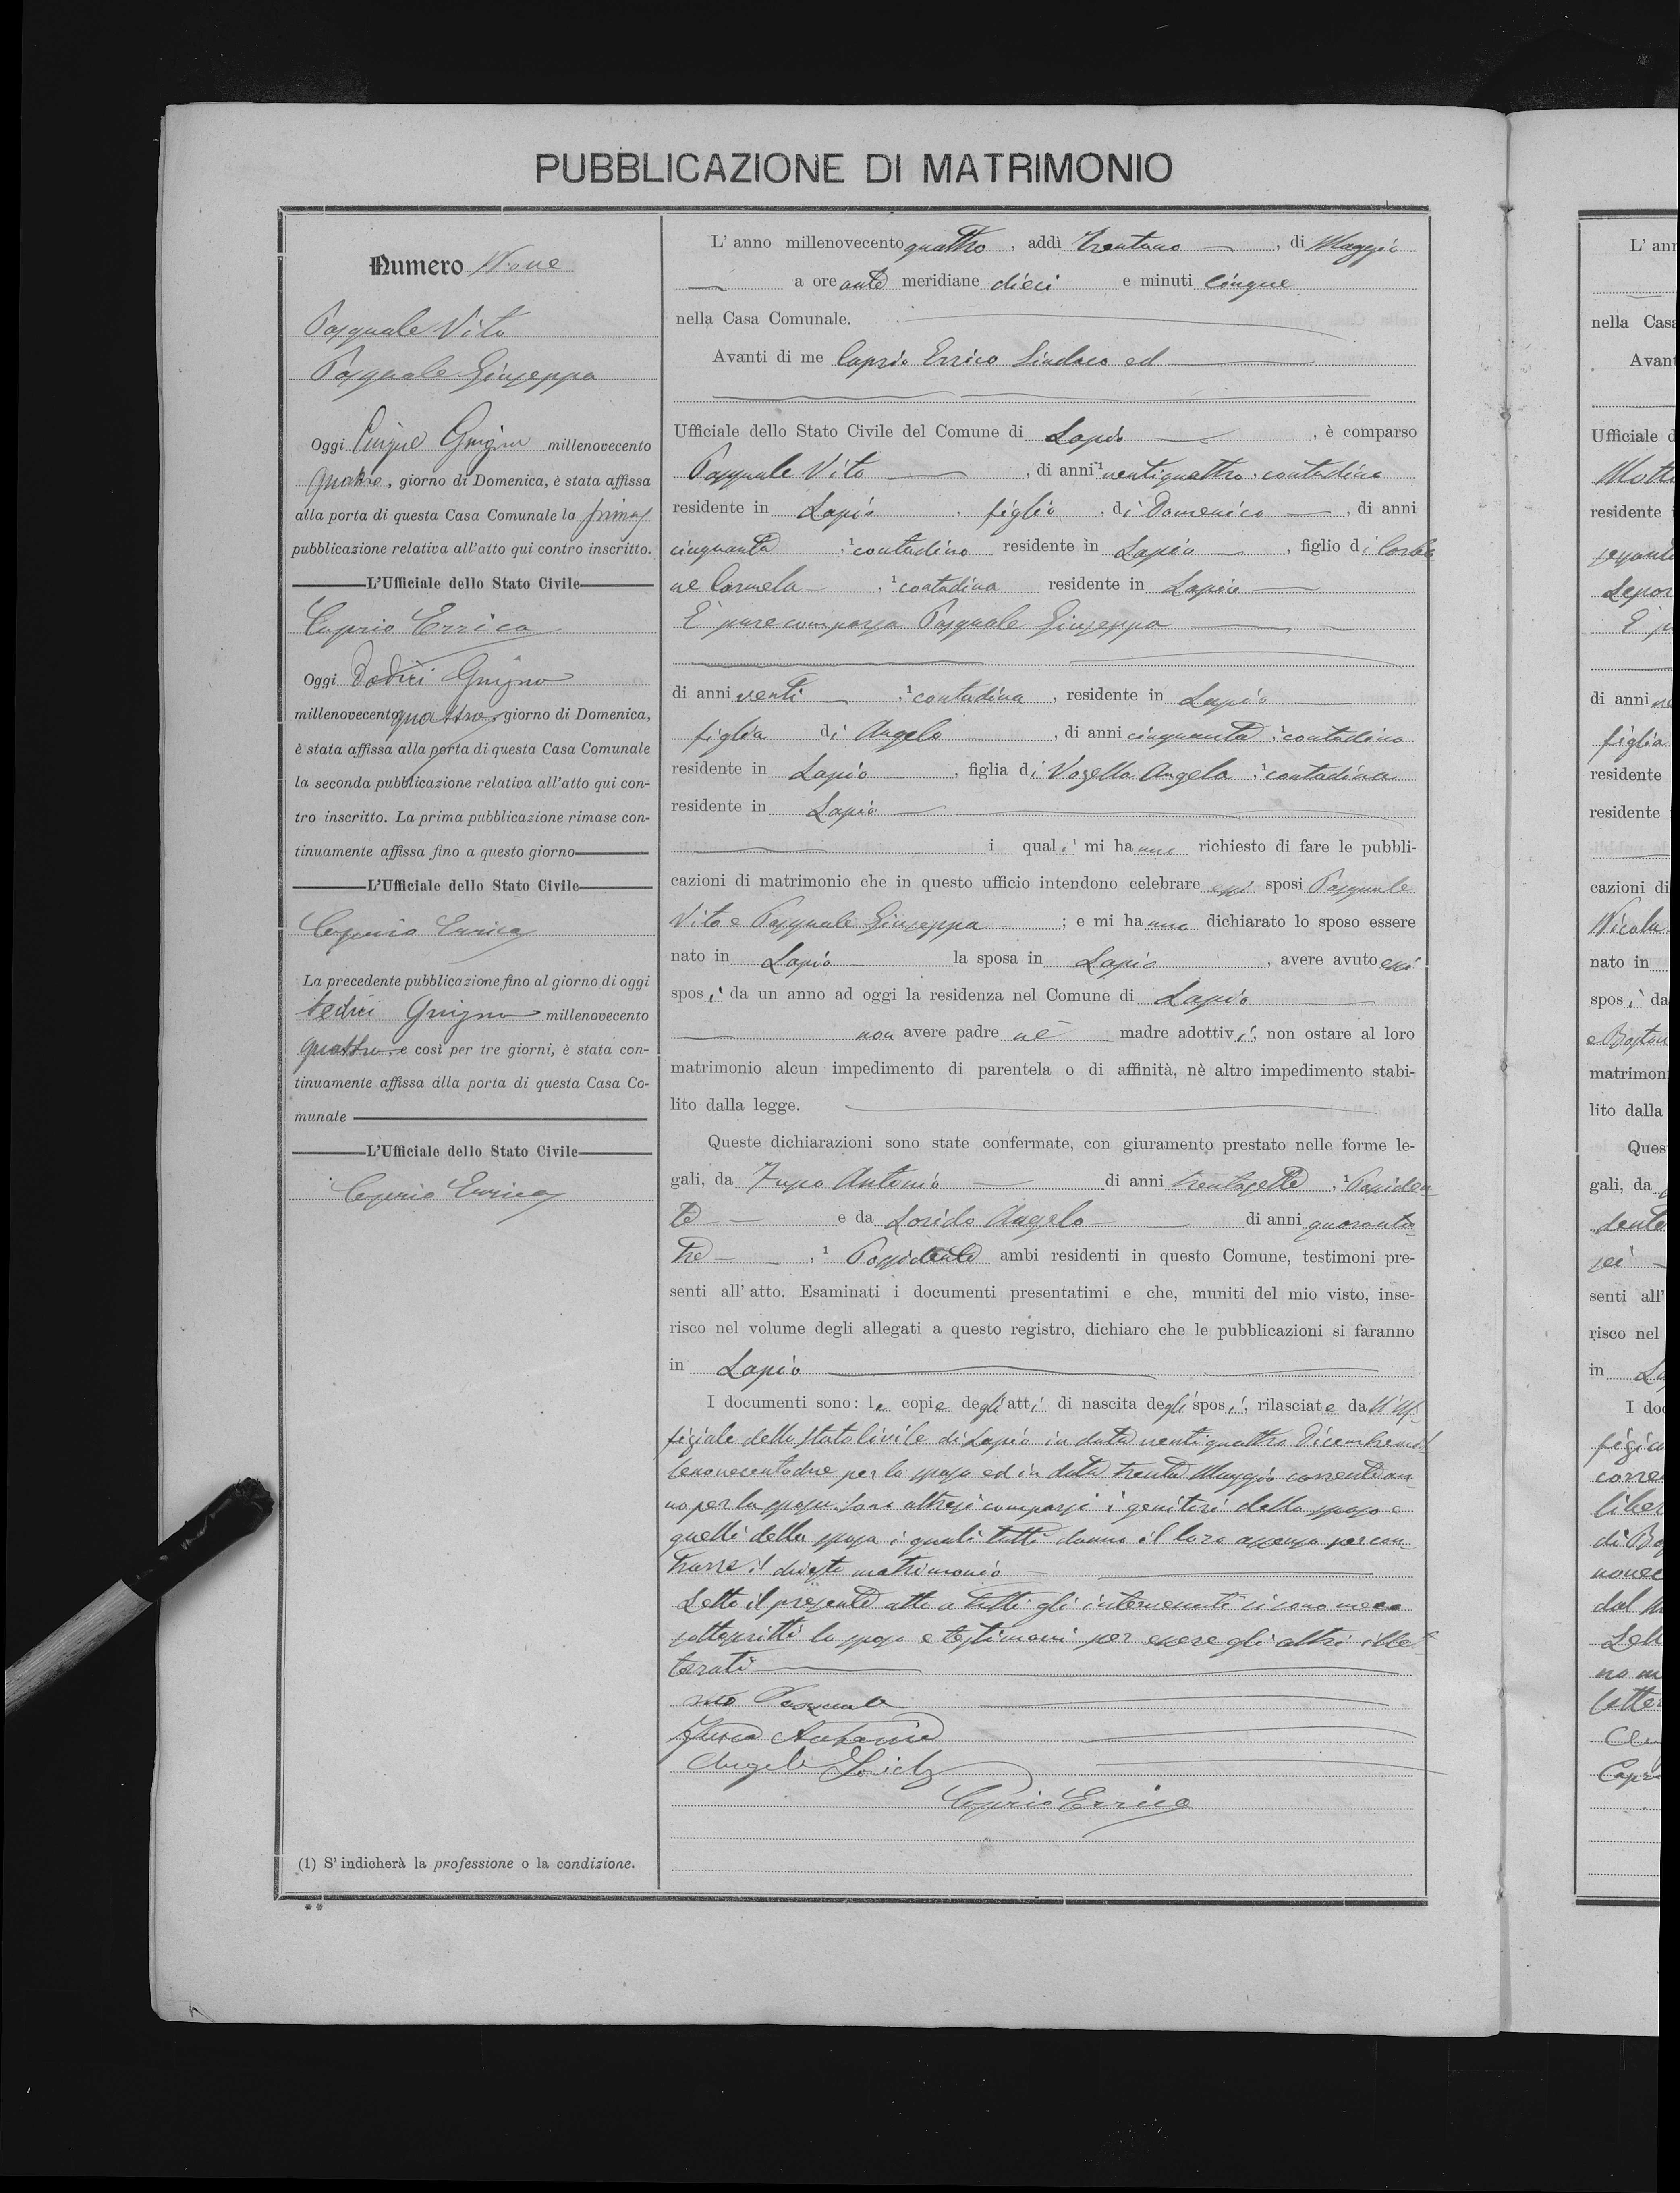 PUBBLICAZIONE DI MATRIMONIO
Numero Nove
Pasquale Vito
Pasquale Giuseppa
Oggi Cinque Giugno millenovecento
quattro, giorno di Domenica, è stata affissa
alla porta di questa Casa Comunale la prima
pubblicazione relativa all'atto qui contro inscritto.
L'Ufficiale dello Stato Civile
Caprio Errico
Oggi Dodici Giugno
millenovecento quattro, giorno di Domenica,
è stata affissa alla porta di questa Casa Comunale
la seconda pubblicazione relativa all'atto qui con-
tro inscritto. La prima pubblicazione rimase con-
tinuamente affissa fino a questo giorno
L'Ufficiale dello Stato Civile
Caprio Errico
La precedente pubblicazione fino al giorno di oggi
sedici Giugno millenovecento
quattro e così per tre giorni, è stata con-
tinuamente affissa alla porta di questa Casa Co-
munale
L'Ufficiale dello Stato Civile
Caprio Errico
(1) S'indicherà la professione o la condizione.
**
L'anno millenovecento quattro, addì trentuno, di Maggio
a ore ante meridiane dieci e minuti cinque
nella Casa Comunale.
Avanti di me Caprio Errico Sindaco ed
Ufficiale dello Stato Civile del Comune di Lapio, è comparso
Pasquale Vito, di anni ventiquattro, 1 contadino
residente in Lapio, figlio, di Domenico, di anni
cinquanta, 1 contadino residente in Lapio, figlio di Carbo
ne Carmela, 1 contadina residente in Lapio
È pure comparsa Pasquale Giuseppa
di anni venti, 1 contadina, residente in Lapio
figlia di Angelo, di anni cinquanta, 1 contadino
residente in Lapio, figlia di Vozella Angela, 1 contadina
residente in Lapio
i quali mi hanno richiesto di fare le pubbli-
cazioni di matrimonio che in questo ufficio intendono celebrare essi sposi Pasquale
Vito e Pasquale Giuseppa; e mi hanno dichiarato lo sposo essere
nato in Lapio la sposa in Lapio, avere avuto essi
sposi da un anno ad oggi la residenza nel Comune di Lapio
non avere padre nè madre adottivi, non ostare al loro
matrimonio alcun impedimento di parentela o di affinità, nè altro impedimento stabi-
lito dalla legge.
Queste dichiarazioni sono state confermate, con giuramento prestato nelle forme le-
gali, da Antonio di anni trentasette, 1 Possiden
te e da Angelo di anni quaranta
tre, 1 Possidente ambi residenti in questo Comune, testimoni pre-
senti all'atto. Esaminati i documenti presentatimi e che, muniti del mio visto, inse-
risco nel volume degli allegati a questo registro, dichiaro che le pubblicazioni si faranno
in Lapio
I documenti sono: le copie degli atti di nascita degli sposi, rilasciate dall'Uf-
ficiale dello Stato Civile di Lapio in data ventiquattro Dicembre mil
lenovecentodue per lo sposo ed in data trenta Maggio corrente an
no per la sposa. Sono altresì comparsi i genitori dello sposo e
quelli della sposa i quali tutti danno il loro assenso per con-
trarre il matrimonio
Letto il presente atto a tutti gli intervenuti si sono meco
sottoscritti lo sposo e testimoni per essere gli altri illet
terati
Vito Pasquale
Antonio
Angelo
Caprio Errico
L'ann
nella Casa
Avant
Ufficiale d
residente
Lepor
di anni
figlia
residente
residente
cazioni di
Nicola
nato in
sposi da
matrimon
lito dalla
Ques
gali, da
dente
sei
senti all'
risco nel
in
I doc
corre
di
dal
Capri